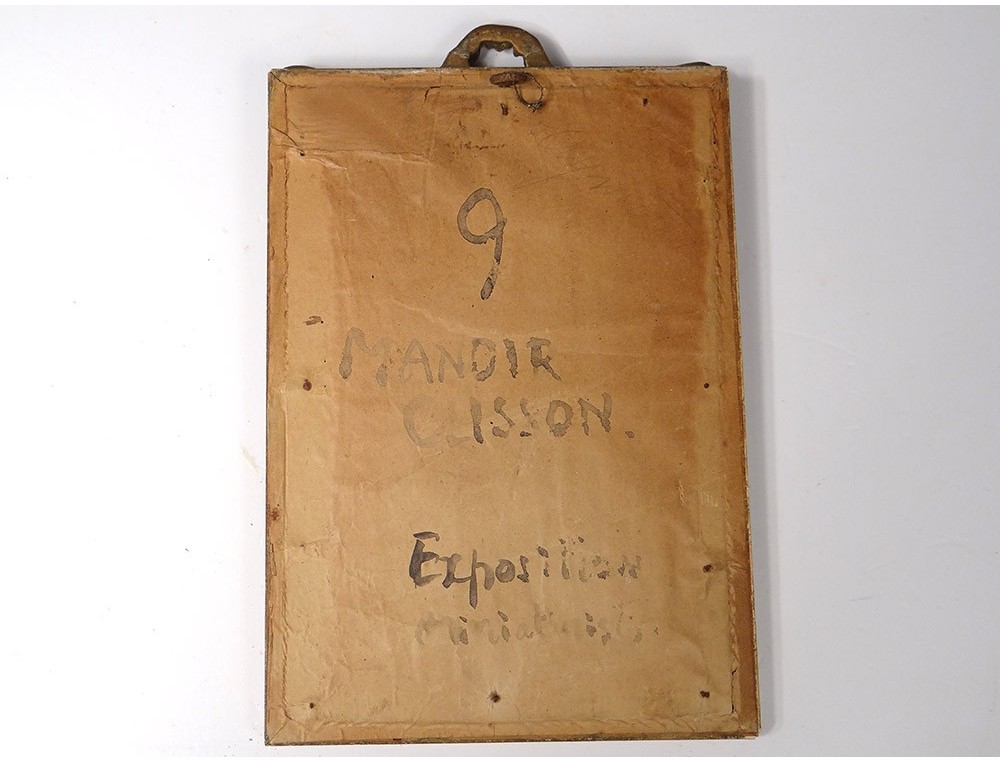 9
MANOIR
CLISSON.
Exposition
miniatures